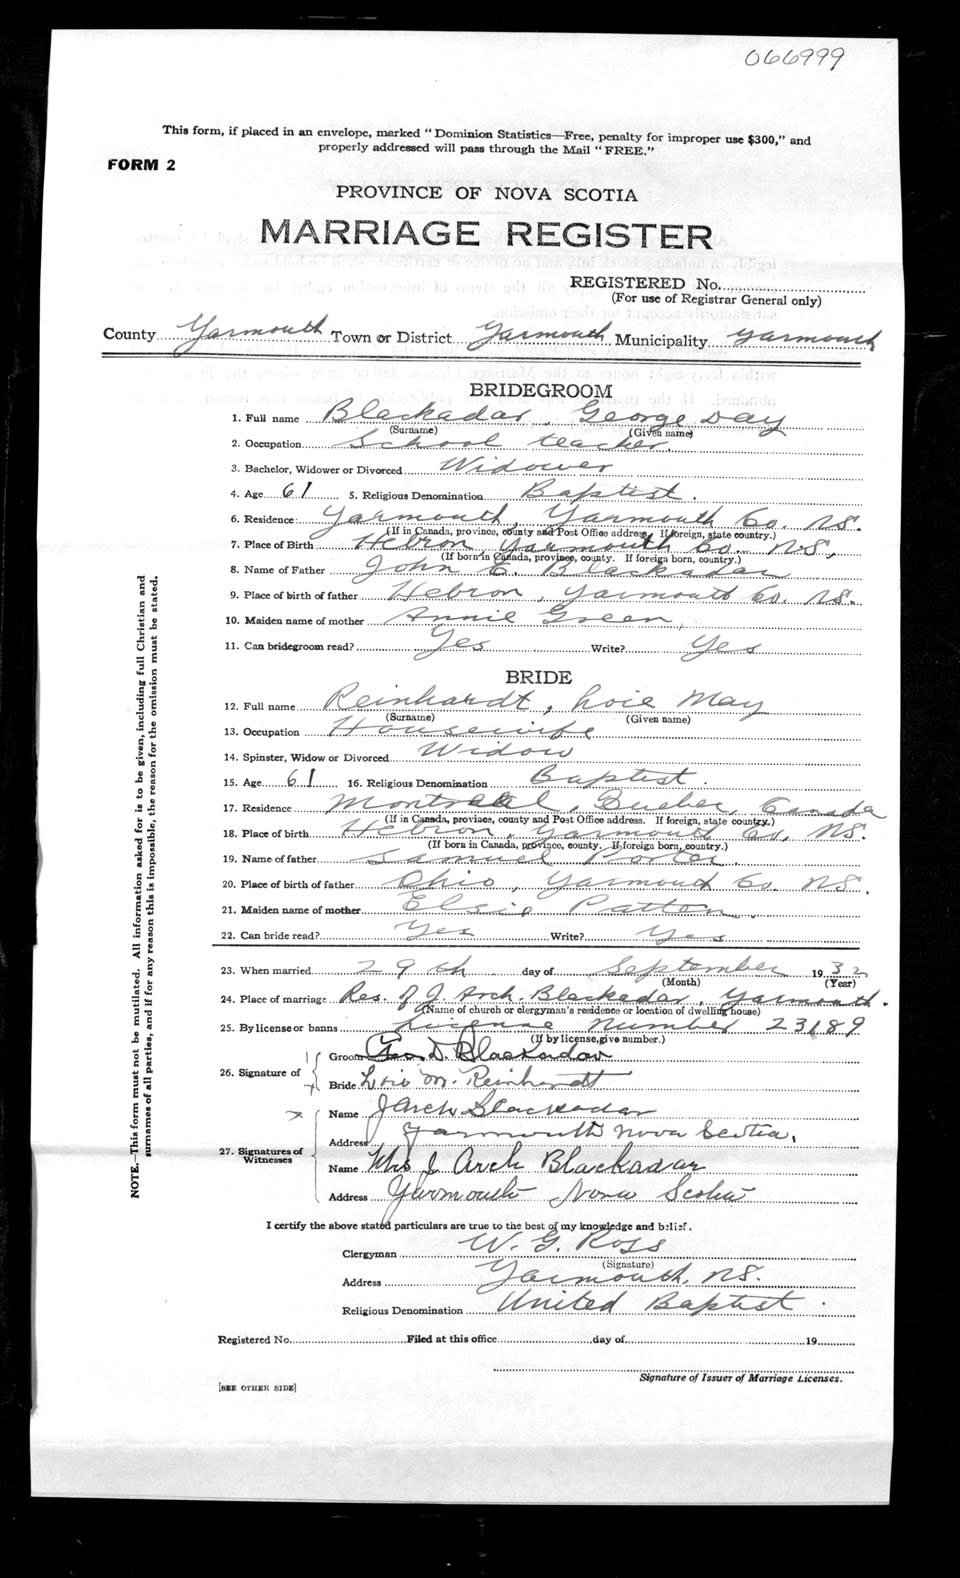 066999
This form, if placed in an envelope, marked "Dominion Statistics—Free, penalty for improper use $300," and
properly addressed will pass through the Mail "FREE."
FORM 2
PROVINCE OF NOVA SCOTIA
MARRIAGE REGISTER
REGISTERED No.
(For use of Registrar General only)
County Yarmouth Town or District Yarmouth Municipality Yarmouth
BRIDEGROOM
1. Full name Blackadar, George Day
(Surname) (Given name)
2. Occupation School teacher.
3. Bachelor, Widower or Divorced Widower
4. Age 61 5. Religious Denomination Baptist.
6. Residence: Yarmouth, Yarmouth Co. NS.
(If in Canada, province, county and Post Office address. If foreign, state country.)
7. Place of Birth Hebron Yarmouth Co. NS,
(If born in Canada, province, county. If foreign born, country.)
8. Name of Father John E. Blackadar
9. Place of birth of father Hebron, Yarmouth Co. NS.
10. Maiden name of mother Annie Green,
11. Can bridegroom read? Yes Write? Yes
BRIDE
12. Full name Reinhardt, Loie May
(Surname) (Given name)
13. Occupation Housewife
14. Spinster, Widow or Divorced Widow
15. Age 61 16. Religious Denomination Baptist.
17. Residence Montreal, Quebec, Canada
(If in Canada, province, county and Post Office address. If foreign, state country.)
18. Place of birth Hebron, Yarmouth Co, NS.
(If born in Canada, province, county. If foreign born, country.)
19. Name of father Samuel Porter.
20. Place of birth of father Ohio, Yarmouth Co. NS.
21. Maiden name of mother Elsie Patton.
22. Can bride read? Yes Write? Yes
23. When married 29th day of September 1932
(Month) (Year)
24. Place of marriage Res. of J. Arch. Blackadar, Yarmouth.
(Name of church or clergyman's residence or location of dwelling house)
25. By license or banns License Number 23189
(If by license, give number.)
26. Signature of
Groom Geo D. Blackadar
Bride Lois M. Reinhardt
27. Signatures of Witnesses
Name J Arch Blackadar
Address Yarmouth Nova Scotia,
Name Mrs J. Arch Blackadar
Address Yarmouth Nova Scotia
I certify the above stated particulars are true to the best of my knowledge and belief.
Clergyman W. G. Ross
(Signature)
Address Yarmouth, NS.
Religious Denomination United Baptist.
Registered No. Filed at this office day of 19
Signature of Issuer of Marriage Licenses.
[SEE OTHER SIDE]
NOTE.—This form must not be mutilated. All information asked for is to be given, including full Christian and
surnames of all parties, and if for any reason this is impossible, the reason for the omission must be stated.